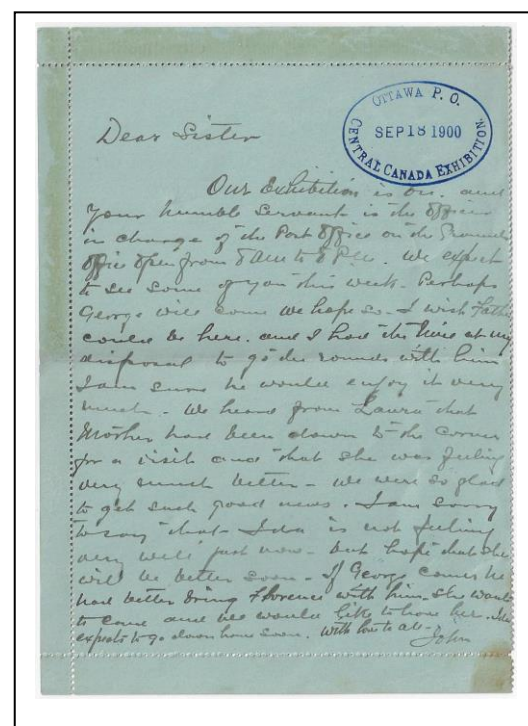 OTTAWA P. O.
SEP 18 1900
CENTRAL CANADA EXHIBITION.
Dear Sister
Our Exhibition is on. and
your humble servant is the Officer
in charge of the Post Office on the Grounds
Office open from 8 AM to 8 PM. We expect
to see some of you this week. Perhaps
George will come we hope so. I wish Father
could be here. and I had the time at my
disposal to go the rounds with him
I am sure he would enjoy it very
much - We heard from Laura that
Mother had been down to the corner
for a visit and that she was feeling
very much better - we were so glad
to get such good news. I am sorry
to say that Ida is not feeling
very well just now - but hope that she
will be better soon - If George comes he
had better bring Florence with him. She wants
to come and we would like to have her. Ida
expects to go down home soon. With love to all -
John